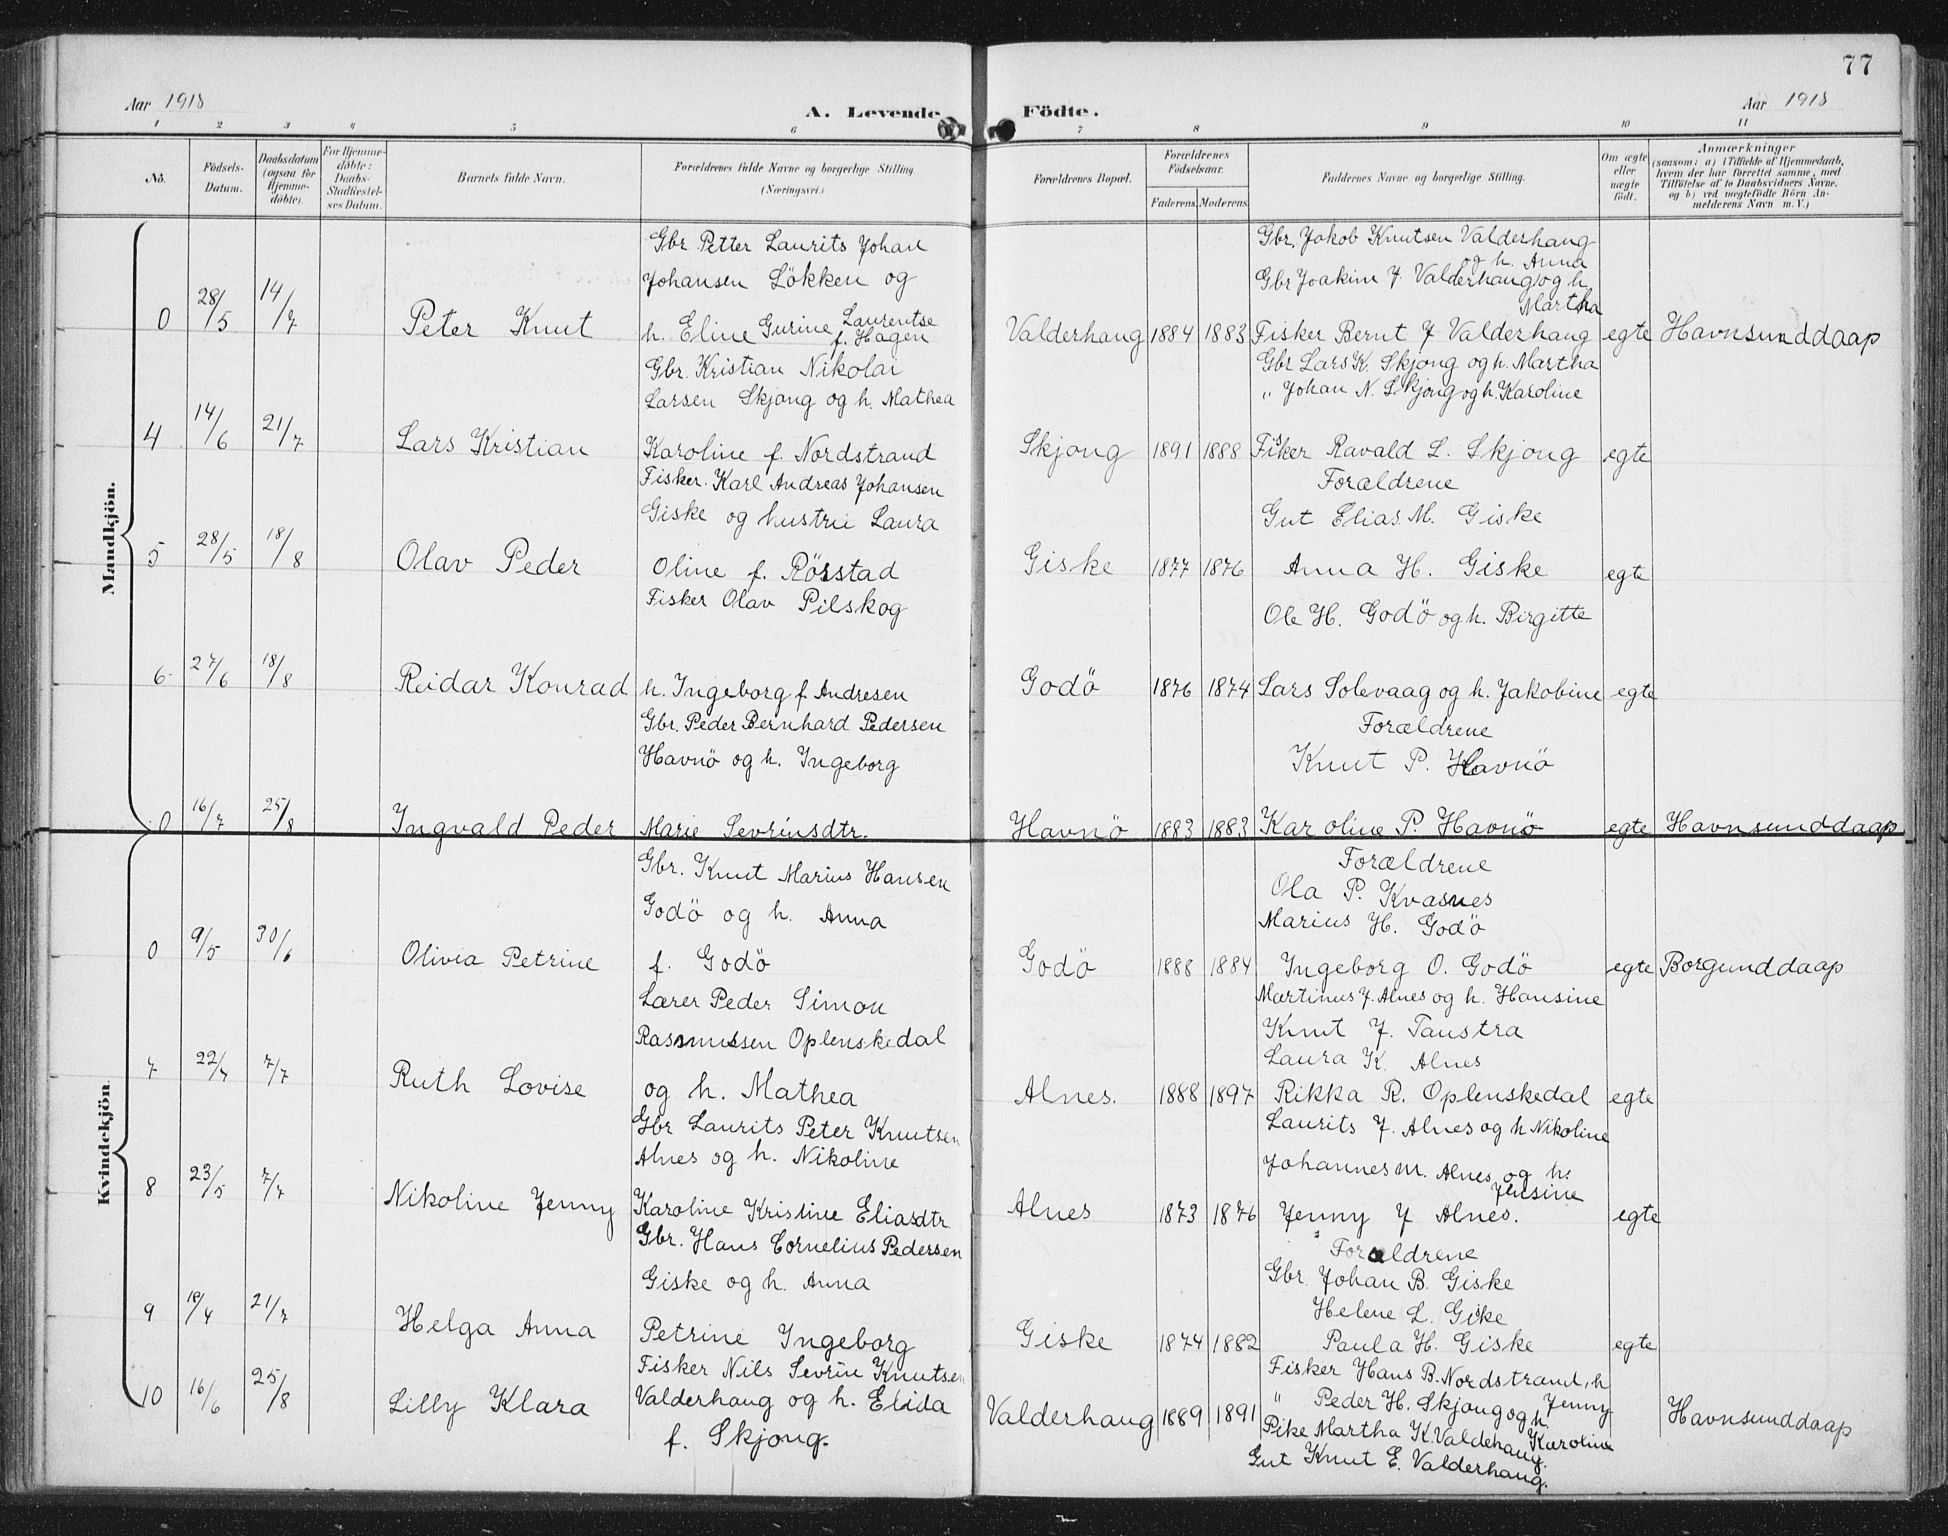 77
Aar 1918
A. Levende
Födte.
Aar 1918
1 2 3 4 5 6 7 8 9 10 11
No.
Födsels-
Datum.
Daabsdatum
(ogsaa for
Hjemme-
döbte).
For Hjemme-
döbte:
Daabs-
Stadfæstel-
ses Datum.
Barnets fulde Navn.
Forældrenes fulde Navne og borgerlige Stilling
(Næringsvei.)
Forældrenes Bopæl.
Forældrenes
Födselsaar.
Faderens. Moderens.
Faddernes Navne og borgerlige Stilling.
Om ægte
eller
uægte
födt.
Anmærkninger
(saasom: a) i Tilfælde af Hjemmedaab,
hvem der har forrettet samme, med
Tilföielse af to Daabsvidners Navne,
og b) ved uægtefödte Börn An-
melderens Navn m. V.)
Mandkjön.
0 28/5 14/7 Peter Knut
Gbr. Petter Laurits Johan
Johansen Lökken og
h. Eline Gurine Laurentse
f. Hagen
Valderhaug 1884 1883
Gbr. Jakob Knutsen Valderhaug
og h. Anna
Gbr Joakim J Valderhaug og h.
Martha
Fisker Bernt J Valderhaug
egte Havnsunddaap
4 14/6 21/7 Lars Kristian
Gbr. Kristian Nikolai
Larsen Skjong og h. Mathea
Karoline f. Nordstrand
Skjong 1891 1888
Gbr Lars K. Skjong og h. Martha
" Johan N. Skjong og h. Karoline
Fisker Ravald L. Skjong
egte
5 28/5 18/8 Olav Peder
Fisker. Karl Andreas Johansen
Giske og hustru Laura
Oline f. Rösstad
Giske 1877 1876
Forældrene
Gut Elias M. Giske
Anna H. Giske
egte
6 27/6 18/8 Reidar Konrad
Fisker Olav Pilskog
h. Ingeborg f. Andresen
Godö 1876 1874
Ole H. Godö og h. Birgitte
Lars Solevaag og h. Jakobine
egte
0 16/7 25/8 Ingvald Peder
Gbr. Peder Bernhard Pedersen
Havnö og h. Ingeborg
Marie Sevrinsdtr.
Havnö 1883 1883
Forældrene
Knut P. Havnö
Karoline P. Havnö
egte Havnsunddaap
Kvindekjön.
0 9/5 30/6 Olivia Petrine
Gbr. Knut Marius Hansen
Godö og h. Anna
f. Godö
Godö 1888 1884
Forældrene
Ola P. Kvasnes
Marius H. Godö
Ingeborg O. Godö
egte Borgunddaap
7 22/4 7/7 Ruth Lovise
Lærer Peder Simon
Rasmussen Oplenskedal
og h. Mathea
Alnes. 1888 1897
Martinus J. Alnes og h. Hansine
Knut J. Taustra
Laura K. Alnes
Rikka R. Oplenskedal
egte
8 23/5 7/7 Nikoline Jenny
Gbr Laurits Peter Knutsen
Alnes og h. Nikoline
Karoline Kristine Eliasdtr
Alnes 1873 1876
Laurits J. Alnes og h Nikoline
Johannes M. Alnes og h.
Jensine
Jenny J Alnes.
egte
9 18/4 21/7 Helga Anna
Gbr. Hans Cornelius Pedersen
Giske og h. Anna
Petrine Ingeborg
Giske 1874 1882
Forældrene
Gbr. Johan B. Giske
Helene L. Giske
Paula H. Giske
egte
10 16/6 25/8 Lilly Klara
Fisker Nils Sevrin Knutsen
Valderhaug og h. Elida
f. Skjong.
Valderhaug 1889 1891
Fisker Hans B. Nordstrand, h
Jenny
" Peder H. Skjong og h.
Karoline
Pike Martha K. Valdehaug.
Gut Knut E. Valderhaug.
Havnsunddaap